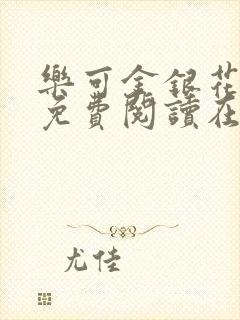 樂可金銀花
免費閱讀在
尤佳